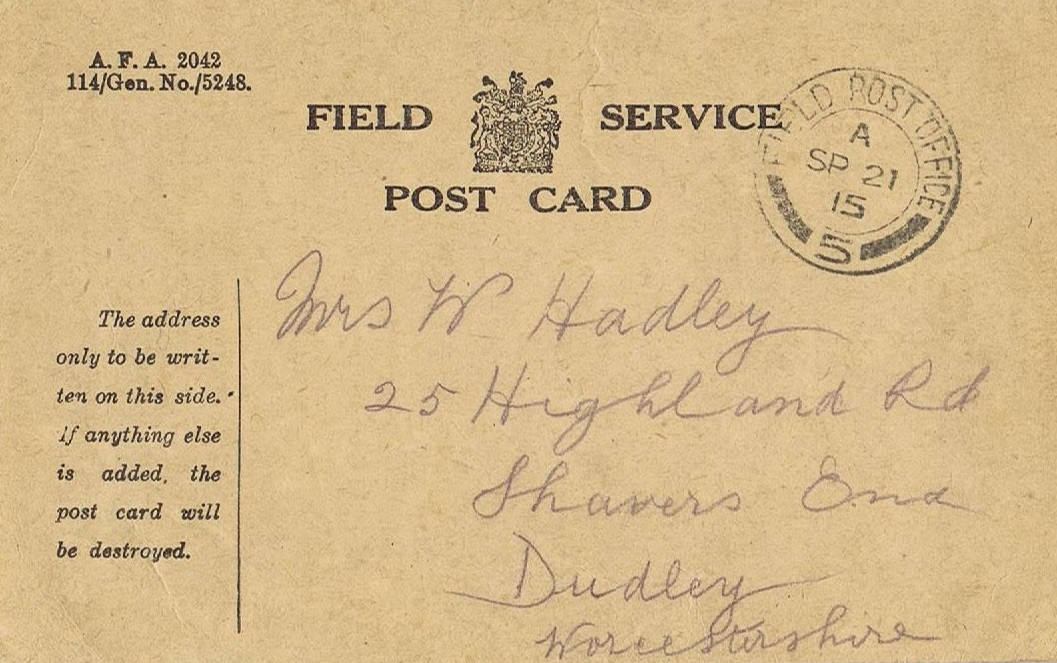 A. F. A. 2042
114/Gen. No./5248.
FIELD SERVICE
POST CARD
FIELD POST OFFICE
A
SP 21
15
5
The address
only to be writ-
ten on this side.
If anything else
is added, the
post card will
be destroyed.
Mrs W Hadley
25 Highland Rd
Shavers End
Dudley
Worcestershire